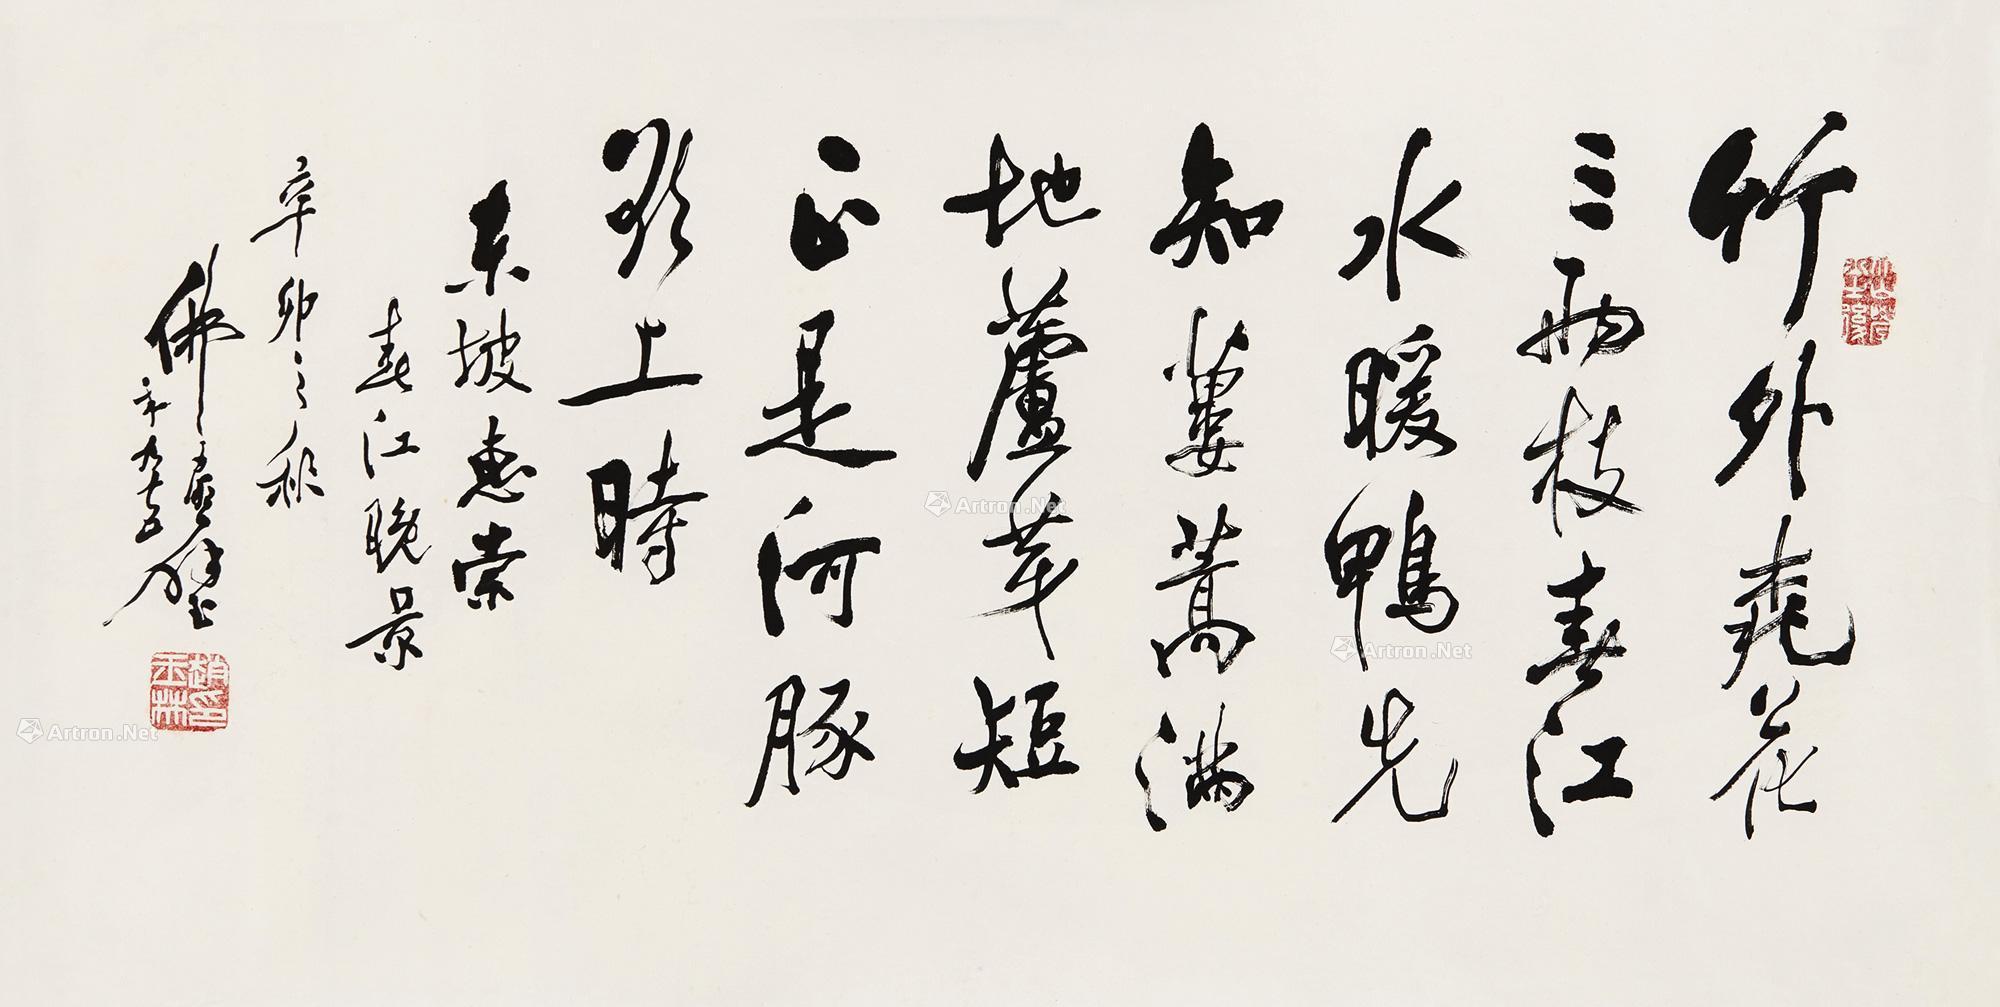 竹外桃花
三兩枝春江
水暖鴨先
知蔞蒿滿
地蘆芽短
正是河豚
欲上時
東坡惠崇
春江晚景
辛卯之秋
佛
年九十五
趙玉林印
Artron.Net
Artron.Net
Artron.Net